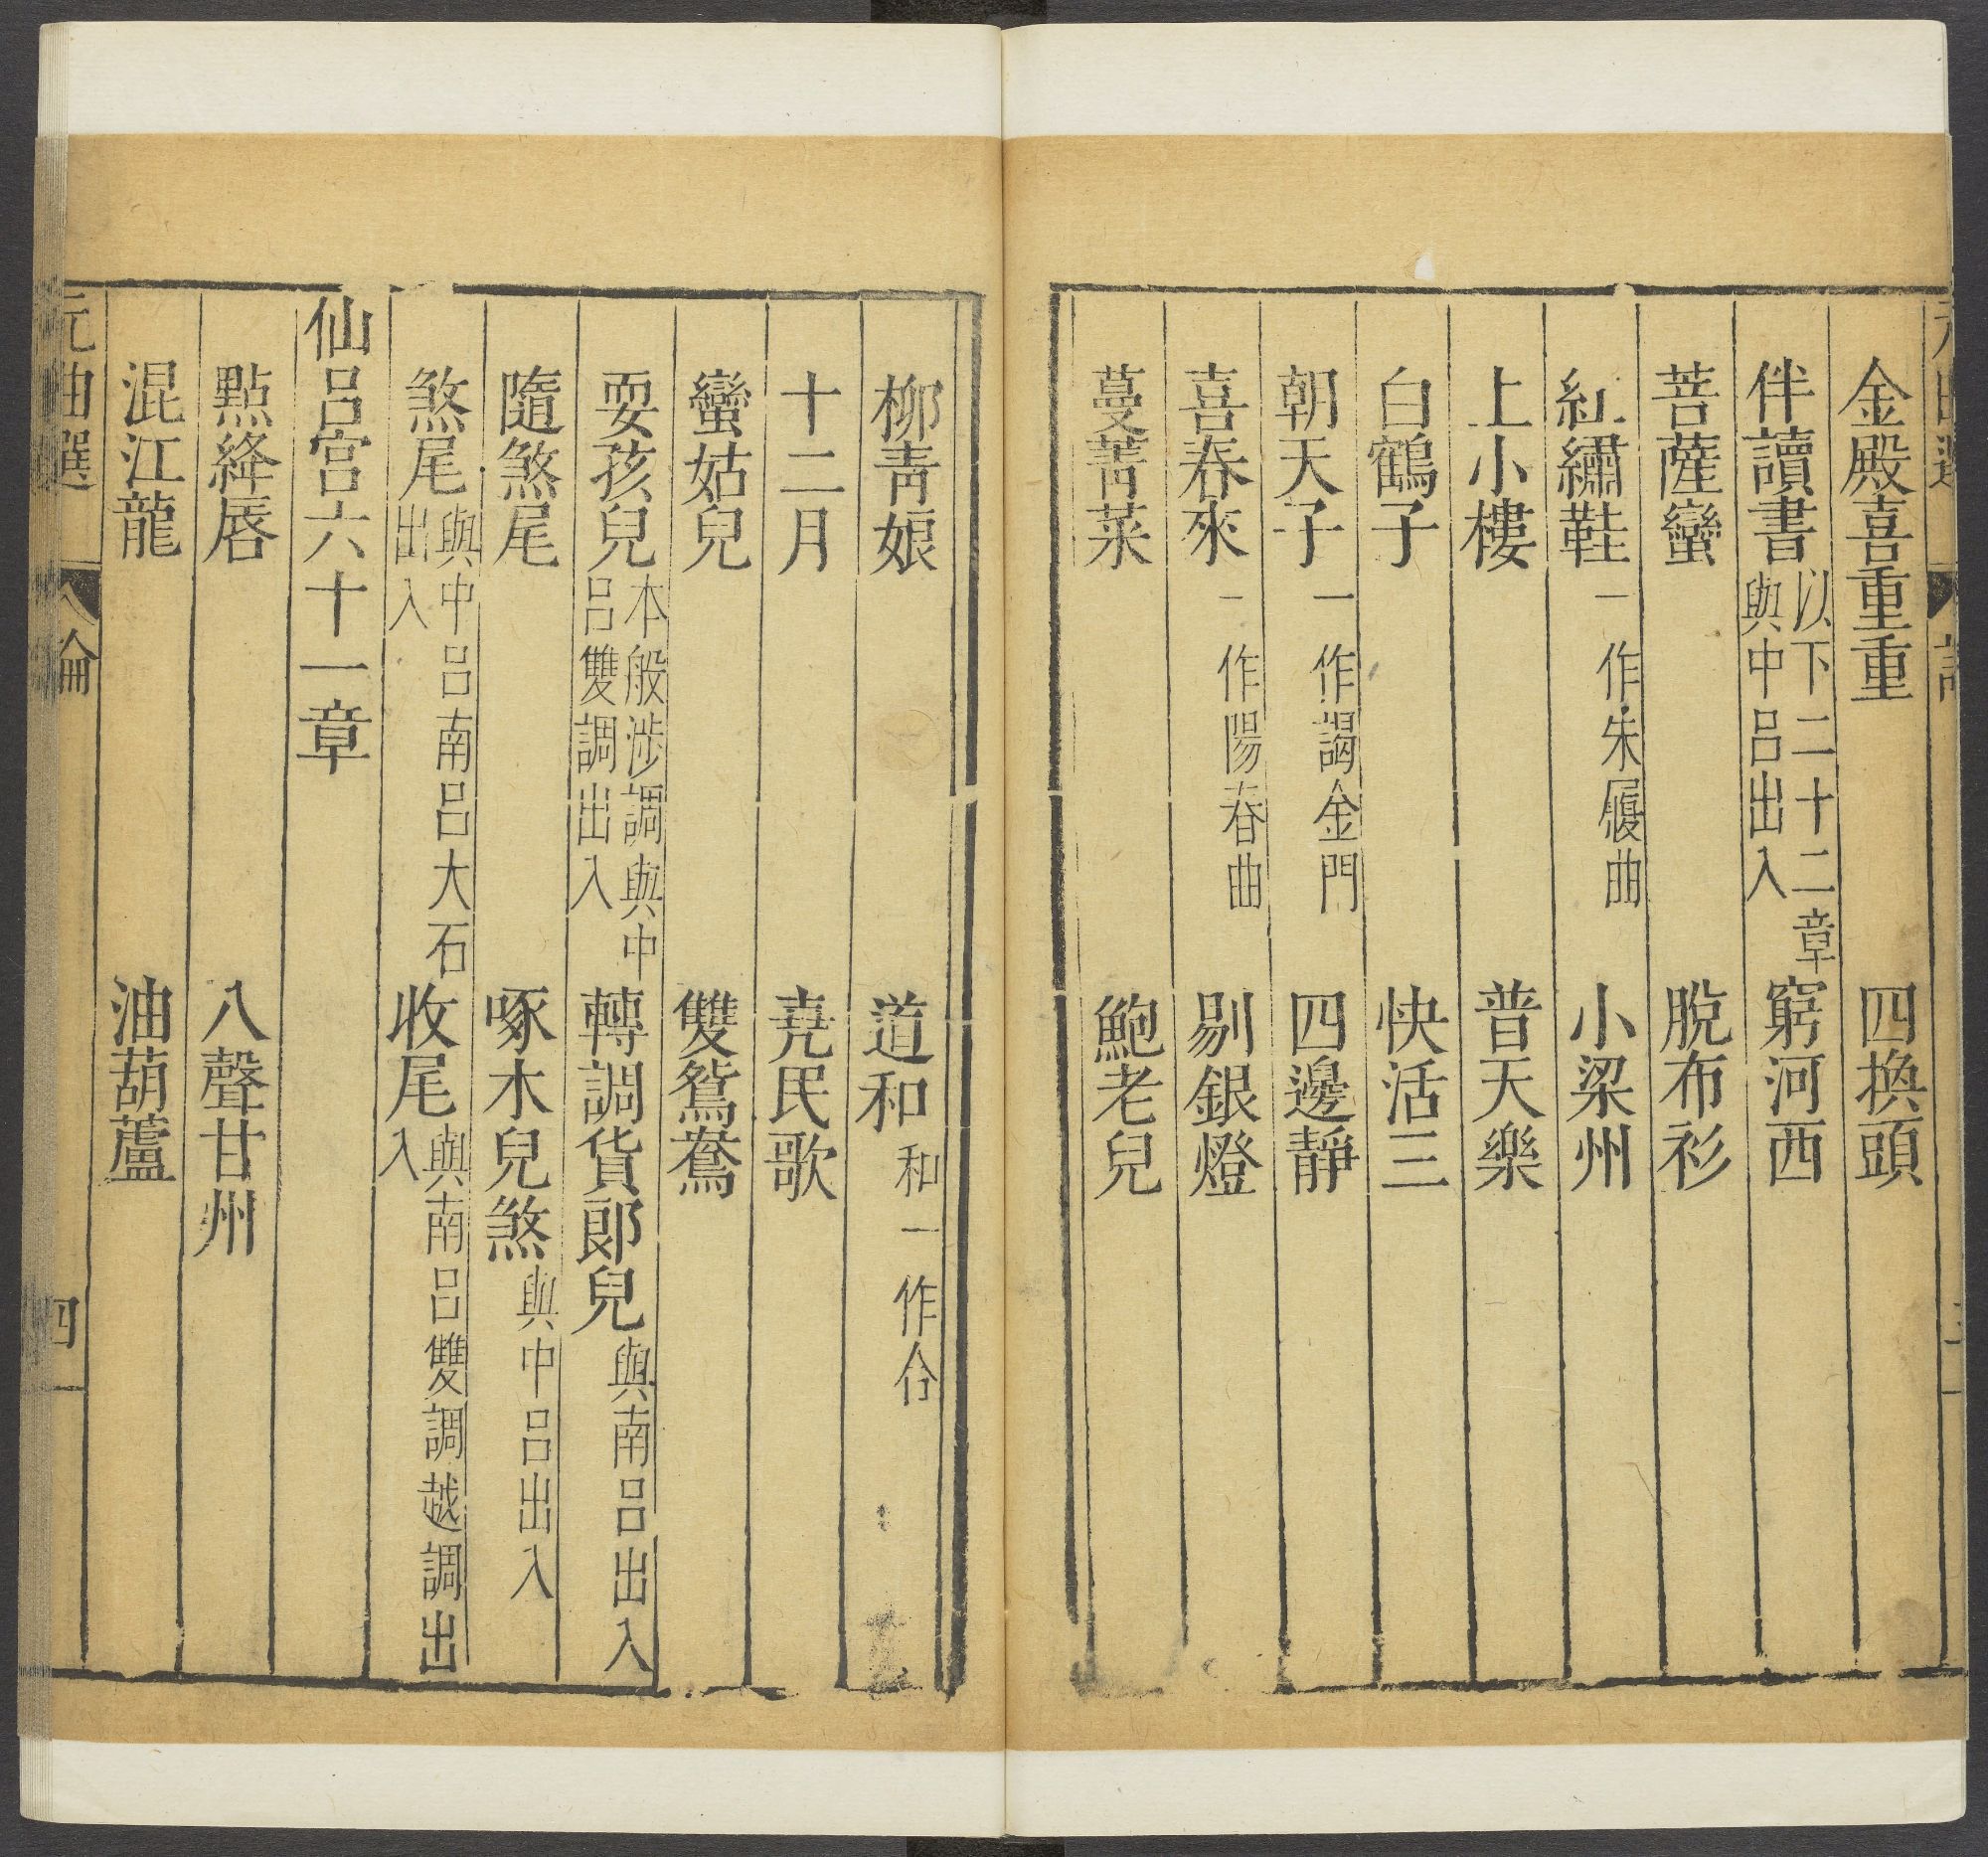 金殿喜重重 四換頭
伴讀書 以下二十二章與中呂出入 窮河西
菩薩蠻 脫布衫
紅繡鞋 一作朱履曲 小梁州
上小樓 普天樂
白鶴子 快活三
朝天子 一作謁金門 四邊靜
喜春來 一作陽春曲 剔銀燈
蔓菁菜 鮑老兒
柳青娘 道和 和一作合
十二月 堯民歌
蠻姑兒 雙鴛鴦
耍孩兒 本般涉調與中呂雙調出入 轉調貨郎兒 與南呂出入
隨煞尾 啄木兒煞 與中呂出入
煞尾 與中呂南呂大石出入 收尾 與南呂雙調越調出入
仙呂宮六十一章
點絳唇 八聲甘州
混江龍 油葫蘆
元曲選 論 四